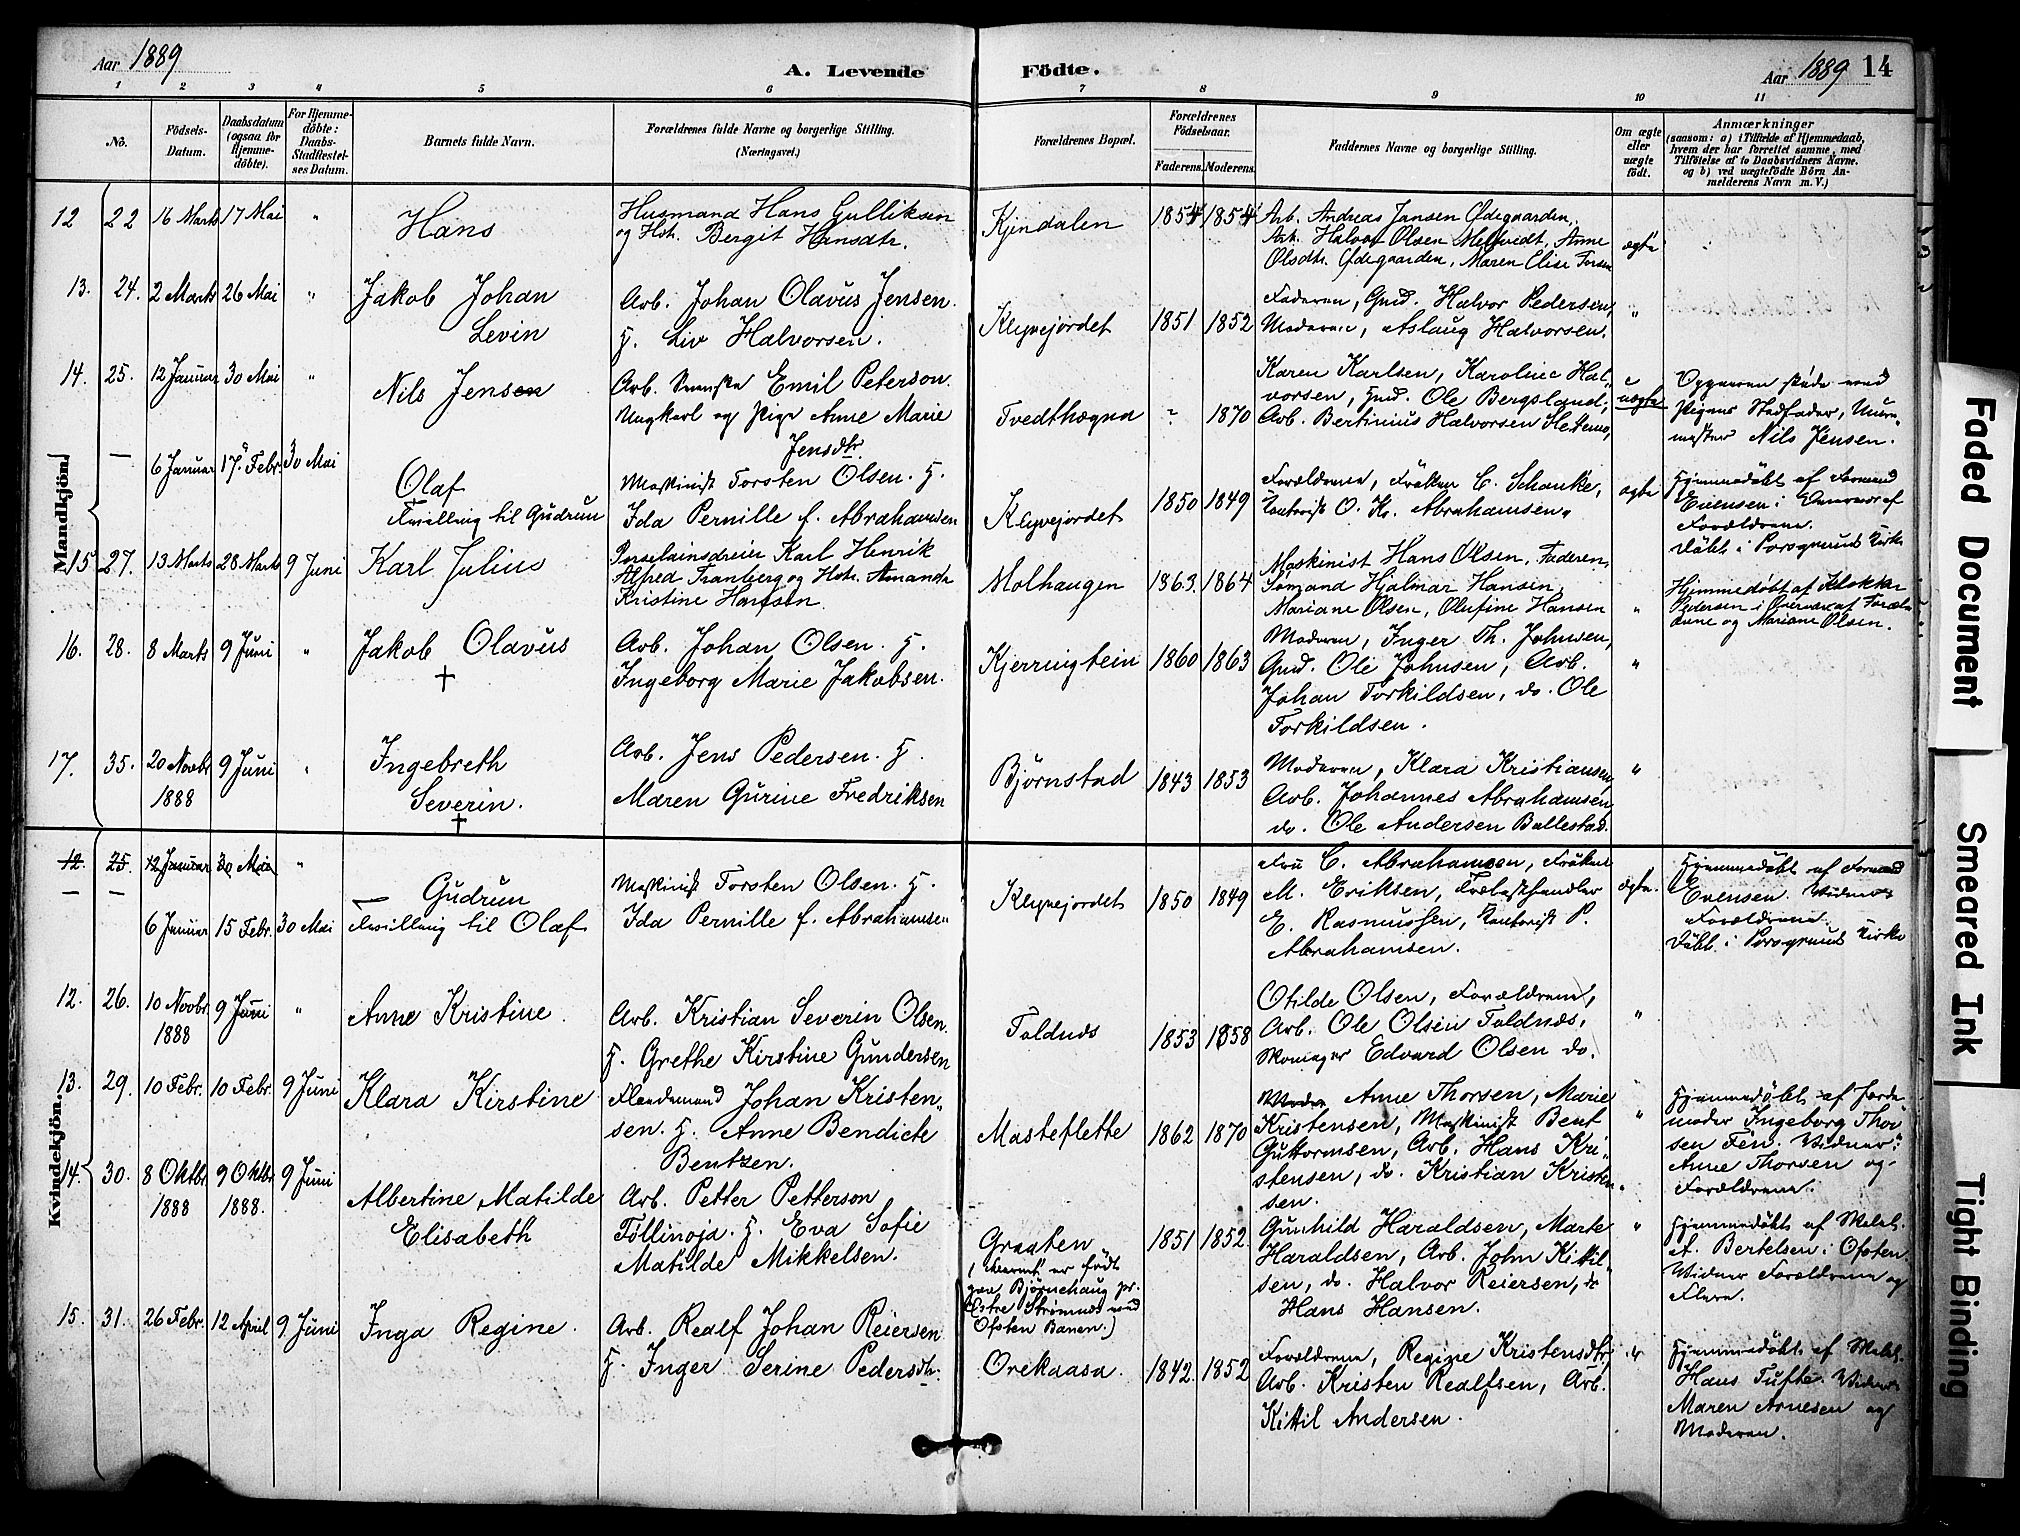 Aar 1889
A. Levende Födte.
Aar 1889 14
1 2 3 4 5 6 7 8 9 10 11
No.
Födsels-Datum.
Daabsdatum (ogsaa for Hjemme-döbte).
For Hjemme-döbte: Daabs-Stadfæstelses Datum.
Barnets fulde Navn.
Forældrenes fulde Navne og borgerlige Stilling.
(Næringsvei.)
Forældrenes Bopæl.
Forældrenes Födselsaar.
Faderens. Moderens.
Faddernes Navne og borgerlige Stilling.
Om ægte eller uægte födt.
Anmærkninger
(saasom: a) i Tilfælde af Hjemmedaab, hvem der har forrettet samme, med Tilföielse af to Daabsvidners Navne. og b) ved uægtefödte Börn Anmelderens Navn m. V.)
Mandkjön.
12 22 16 Marts 17 Mai " Hans
Husmand Hans Gulliksen
og Hstr. Bergit Hansdtr.
Kjendalen 1854 1854
Arb. Andreas Jansen Ødegaarden,
Arb. Halvor Olsen Anne
Olsdtr. Ødegaarden, Maren Elise
ægte
13. 24. 2 Marts 26 Mai " Jakob Johan
Levin
Arb. Johan Olavus Jensen.
H. Liv Halvorsen.
Klyvejordet 1851 1852
Faderen, Gmd. Halvor Pedersen,
Moderen, Aslaug Halvorsen.
"
14. 25. 12 Januar 30 Mai " Nils Jensen
Arb. Svenske Emil Peterson
Ungkarl og Pige Anne Marie
Jensdtr.
Tvedthogna ? 1870
Karen Karlsen, Karoline Hal-
vorsen, Gmd. Ole Bergsland,
Arb. Bertinius Halvorsen
uægte
Opgaven skede ved
Pigens Stedfader, Mur-
mester Nils Jensen.
— 6 Januar 17 Febr. 30 Mai Olaf
Tvilling til Gudrun
Maskinist Torsten Olsen. H.
Ida Pernille f. Abrahamsen
Klyvejordet 1850 1849
Forældrene, Frøken C. Schanke,
Kontorist O. Kr. Abrahamsen.
ægte
Hjemmedøbt af Formand
Evensen i Overvær af
Forældrene.
Døbt i Porsgrund Kirke
15 27. 13 Marts 28 Marts 9 Juni Karl Julius
Porselainsdreier Karl Henrik
Alfred Tranberg og Hstr. Amanda
Kristine Hansen.
Molhaugen 1863. 1864
Maskinist Hans Olsen, Faderen,
Sømand Hjalmar Hansen,
Mariane Olsen, Olufine Hansen
"
Hjemmedøbt af Klokker
Pedersen i Overvær af Foræl-
drene og Mariane Olsen.
16. 28. 8 Marts 9 Juni " Jakob Olavus
†
Arb. Johan Olsen. H.
Ingeborg Marie Jakobsen.
Kjerringtein 1860 1863
Moderen, Inger Th. Johnsen,
Gmd. Ole Johnsen, Arb.
Johan Torkildsen, do. Ole
Torkildsen.
"
17. 35. 20 Novbr 9 Juni "
1888
Ingebreth
Severin.
†
Arb. Jens Pedersen. H.
Maren Gurine Fredriksen
Bjørnstad 1843 1853
Moderen, Klara Kristiansen,
Arb. Johannes Abrahamsen,
do. Ole Andersen Ballestad.
"
Kvindekjön.
12. 25. 12 Januar 30 Mai "
— — 6 Januar 15 Febr. 30 Mai
Gudrun
Tvilling til Olaf
Maskinist Torsten Olsen. H.
Ida Pernille f. Abrahamsen
Klyvejordet 1850 1849
Fru C. Abrahamsen, Frøken
M. Eriksen, Trælasthandler
E. Rasmussen, Kontorist P.
Abrahamsen.
ægte.
Hjemmedøbt af Formand
Evensen. Vidner
Forældrene.
Døbt i Porsgrund Kirke
12. 26. 10 Novbr. 9 Juni "
1888
Anne Kristine.
Arb. Kristian Severin Olsen.
H. Grethe Kirstine Gundersen
Toldnæs 1853 1858
Otilde Olsen, Forældrene,
Arb. Ole Olsen Toldnæs,
Edvard Olsen do.
"
13. 29. 10 Febr. 10 Febr. 9 Juni Klara Kirstine
Johan Kristen-
sen. H. Anne Bendicte
Bentzen.
Masteflette 1862 1870
Anne Thorsen, Marie
Kristensen, Maskinist Bent
Guttormsen, Arb. Hans Kri-
stensen, do. Kristian Kristen-
sen.
"
Hjemmedøbt af Jorde-
moder Ingeborg Thor-
sen Fen. Vidner:
Anne Thorsen og
Forældrene.
14. 30. 8 Oktbr 9 Oktbr 9 Juni
1888 1888.
Albertine Matilde
Elisabeth
Arb. Petter Petterson
Töllinoja. H. Eva Sofie
Matilde Mikkelsen.
Graaten
(Barnet er født
paa Bjørnehaug pr.
Østre Strømnæs ved
Ofoten Banen.)
1851 1852.
Gunhild Haraldsen, Marte
Haraldsen, Arb. John Kittil-
sen, do. Halvor Reiersen, do
Hans Hansen.
"
Hjemmedøbt af
A. Bertelsen i Ofoten.
Vidner Forældrene og
Flere.
15. 31. 26 Febr. 12 April 9 Juni Inga Regine.
Arb. Realf Johan Reiersen
H. Inger Serine Pedersdtr.
Orekaasa 1842. 1852
Forældrene, Regine Kristensdtr,
Arb. Kristen Realfsen, Arb.
Kittil Andersen.
"
Hjemmedøbt af
Hans Tufte. Vidner
Maren Arnesen og
Moderen.
Faded Document
Smeared Ink
Tight Binding